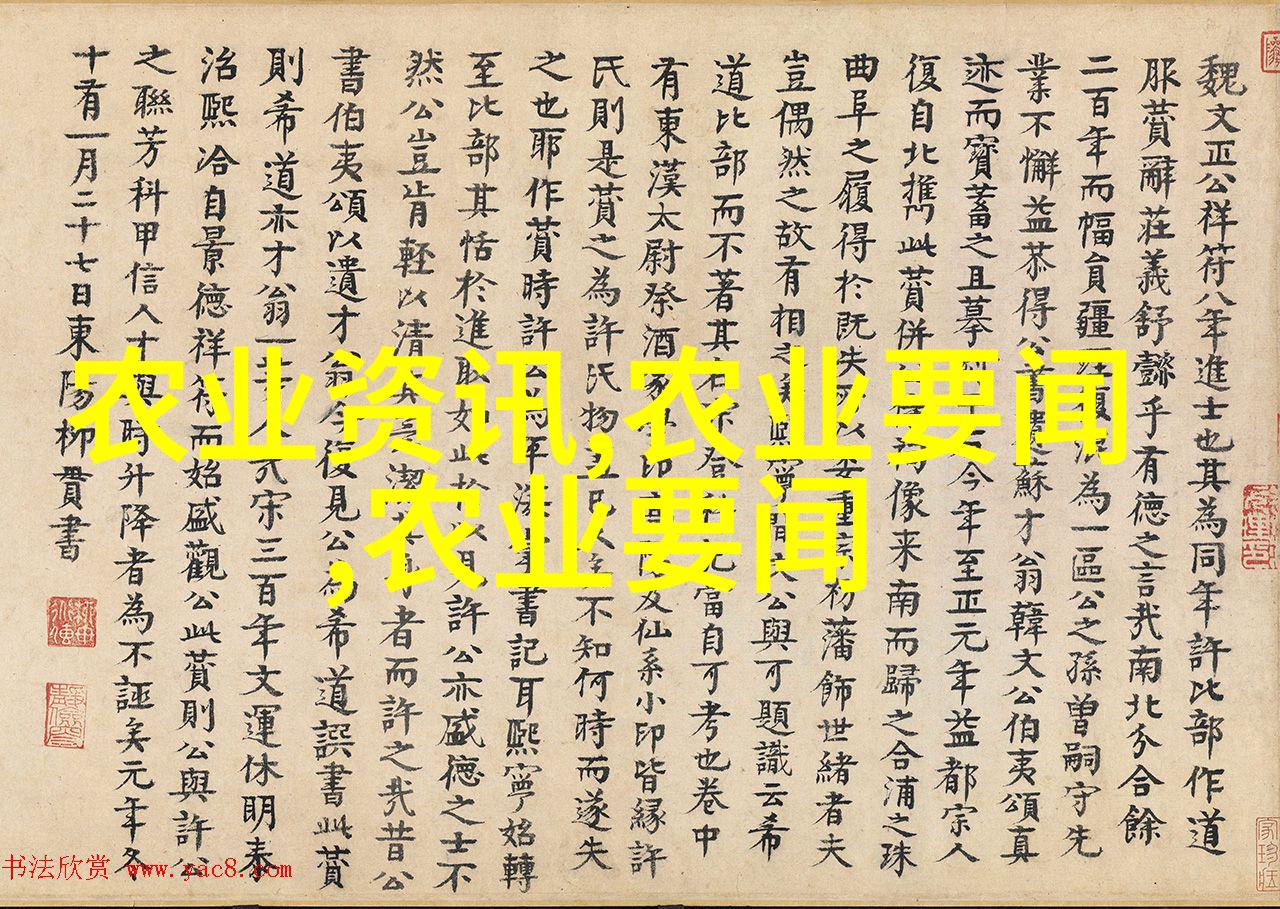 魏文正公祥符八年進士也其為同年許比部作道
服贊辭莊義舒懿乎有德之言哉南北分合餘
二百年而幅員疆復為一區公之孫曾嗣守先
業不懈益恭得公舊蘇才翁韓文公伯夷頌真
迹而寶蓄之且摹今年至正元年益都宗人
復自北攜此贊併像来南而歸之合浦之珠
曲阜之履得於既失以安重初藩飾世緒者夫
豈偶然之故有相之熙寧間公與可題識云希
道比部而不著其登科當自可考也卷中
有東漢太尉祭酒家印及仙系小印皆緣許
氏則是贊之為許氏物不知何時而遂失
之也耶作贊時許公為平書記耳熙寧始轉
至比部其恬於進取如此許公亦盛德之士不
然公豈肯輕以清潔者而許之哉昔公
書伯夷頌以遺才翁今復見公為希道譔書此贊
則希道亦才翁一人宋三百年文運休明泰
治熙洽自景德祥符而始盛觀公此贊則公與許公
之聯芳科甲信人才與時升降者為不誣矣元年冬
十有一月二十七日東陽柳貫書
农业资讯,农业要闻
,农业要闻
书法欣赏 www.yac8.com